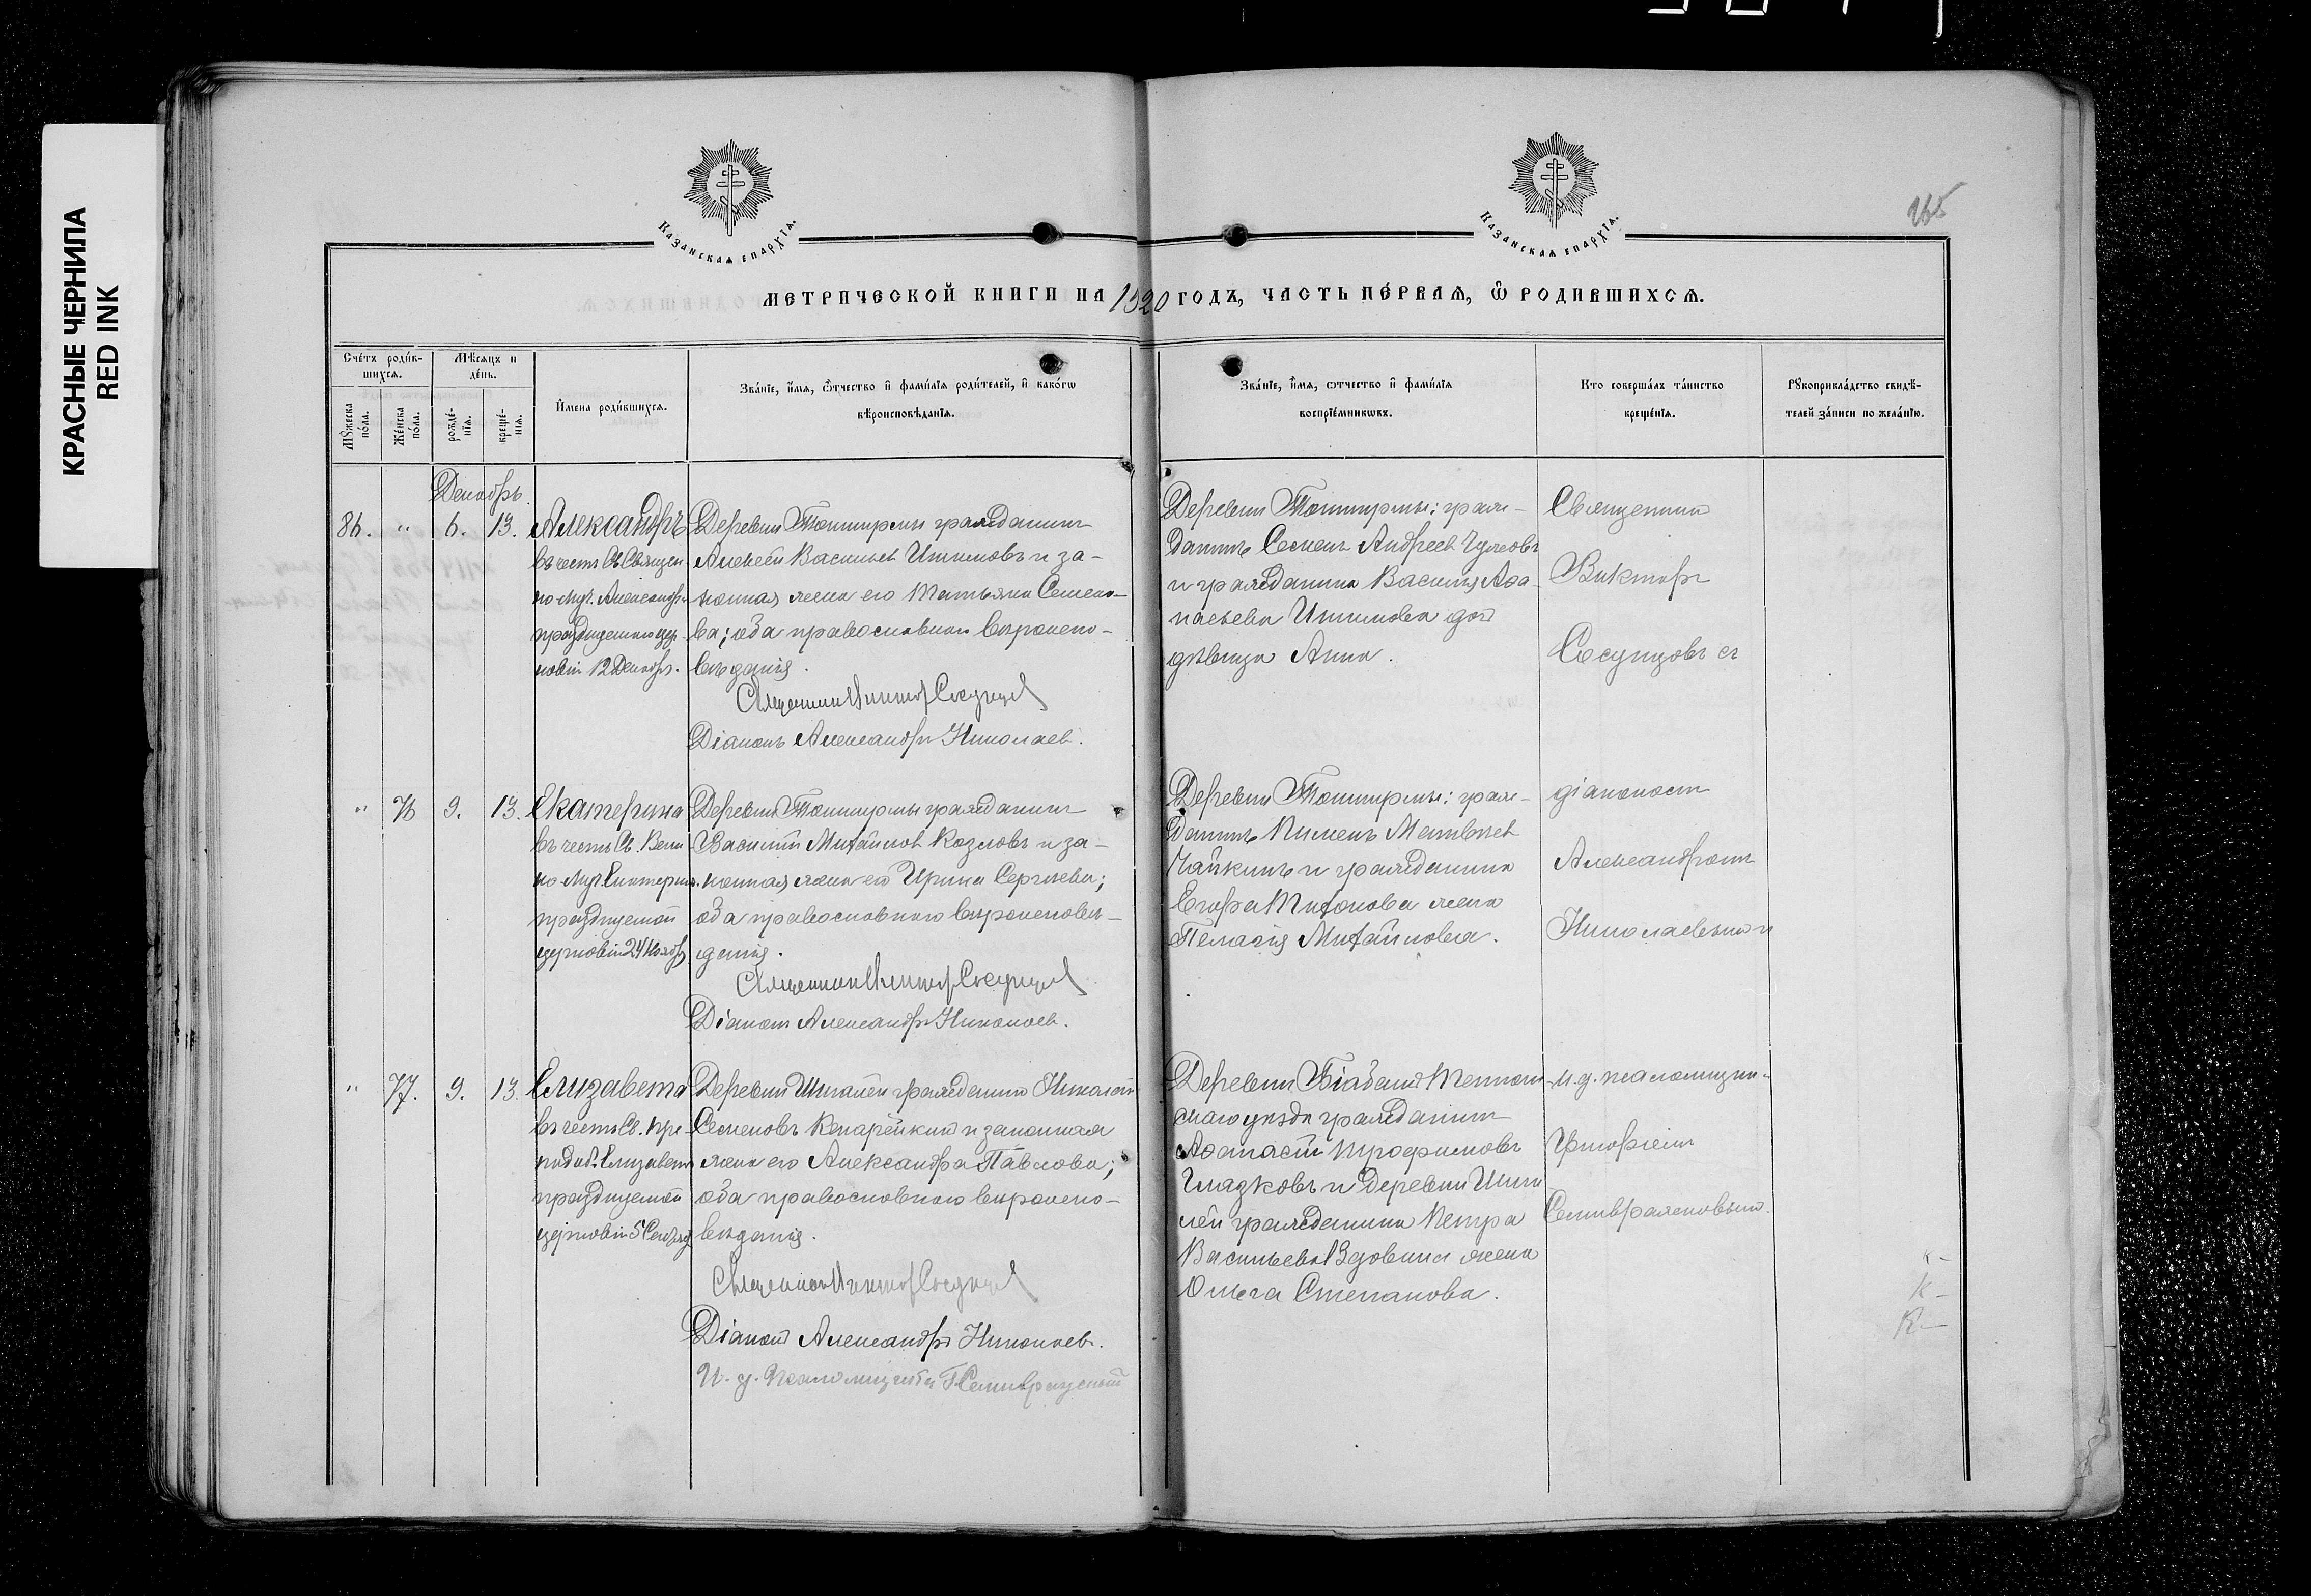 КРАСНЫЕ ЧЕРНИЛА
RED INK
165
Казанская епархїя.
Казанская епархїя.
МЕТРИЧЕСКОЙ КНИГИ НА 1920 ГОДЪ, ЧАСТЬ ПЕ́РВАЯ, Ѽ РОДИВШИХСѦ.
Сче́тъ роди́в-
шихсѧ.
Мѣсѧцъ и
де́нь.
Мꙋ́жеска
по́ла.
Же́нска
по́ла.
рожде́-
нїѧ.
креще́-
нїѧ.
И҆мена роди́вшихсѧ.
Зва́нїе, и҆́мѧ, ѻ҆́тчество и҆ фами́лїѧ роди́телей, и҆ како́гѡ
вѣроисповѣ́данїѧ.
Зва́нїе, и҆́мѧ, ѻтчество и҆ фами́лїѧ
воспрїе́мникѡвъ.
Кто соверша́лъ та́инство
креще́нїѧ.
Рꙋкоприкла́дство свидѣ́-
телей за́писи по жела́нїю.
Декабрь.
86. " 6. 13. Александръ
въ честь Св. Священ
но-муч. Александра
празднуемаго цер-
ковію 12 Декабр.
Деревни гражданинъ
Алексѣй Васильевъ Ишимовъ и за-
конная жена его Татьяна Семено-
ва; оба православнаго вѣроиспо-
вѣданія.
Священникъ Викторъ Сосунцовъ
Діаконъ Александръ Николаев.
Деревни граж-
данинъ Семенъ Андреев
и гражданина Василія Аѳа-
насьева Ишимова доч
дѣвица Анна.
Священник
Викторъ
Сосунцовъ съ
" 76 9. 13. Екатерина
въ честь Св. Вели
ко-муч. Екатерины
празднуемой
церковію 24 Ноябр.
Деревни гражданинъ
Василій Михайлов Козловъ и за-
конная жена его Ирина Сергѣева;
оба православнаго вѣроисповѣ-
данія.
Священникъ Викторъ Сосунцовъ
Діаконъ Александръ Николаев.
Деревни граж-
данинъ Пименъ Матвѣев
Чайкинъ и гражданина
Егора Тихонова жена
Пелагія Михайлова.
діакономъ
Александромъ
Николаевымъ
" 77. 9. 13. Елизавета
въ честь Св. Пре-
подоб. Елизаветы
празднуемой
церковію 5 Сентяб.
Деревни гражданинъ Николай
Семеновъ и законная
жена его Александра Павлова;
оба православнаго вѣроиспо-
вѣданія.
Священникъ Викторъ Сосунцовъ
Діаконъ Александръ Николаев.
И. д. Псаломщика
Деревни
скаго уѣзда гражданинъ
Аѳанасій Трофимовъ
Гладковъ и деревни
гражданина Петра
Васильева Вдовина жена
Ольга Степанова.
И. д. псаломщик-